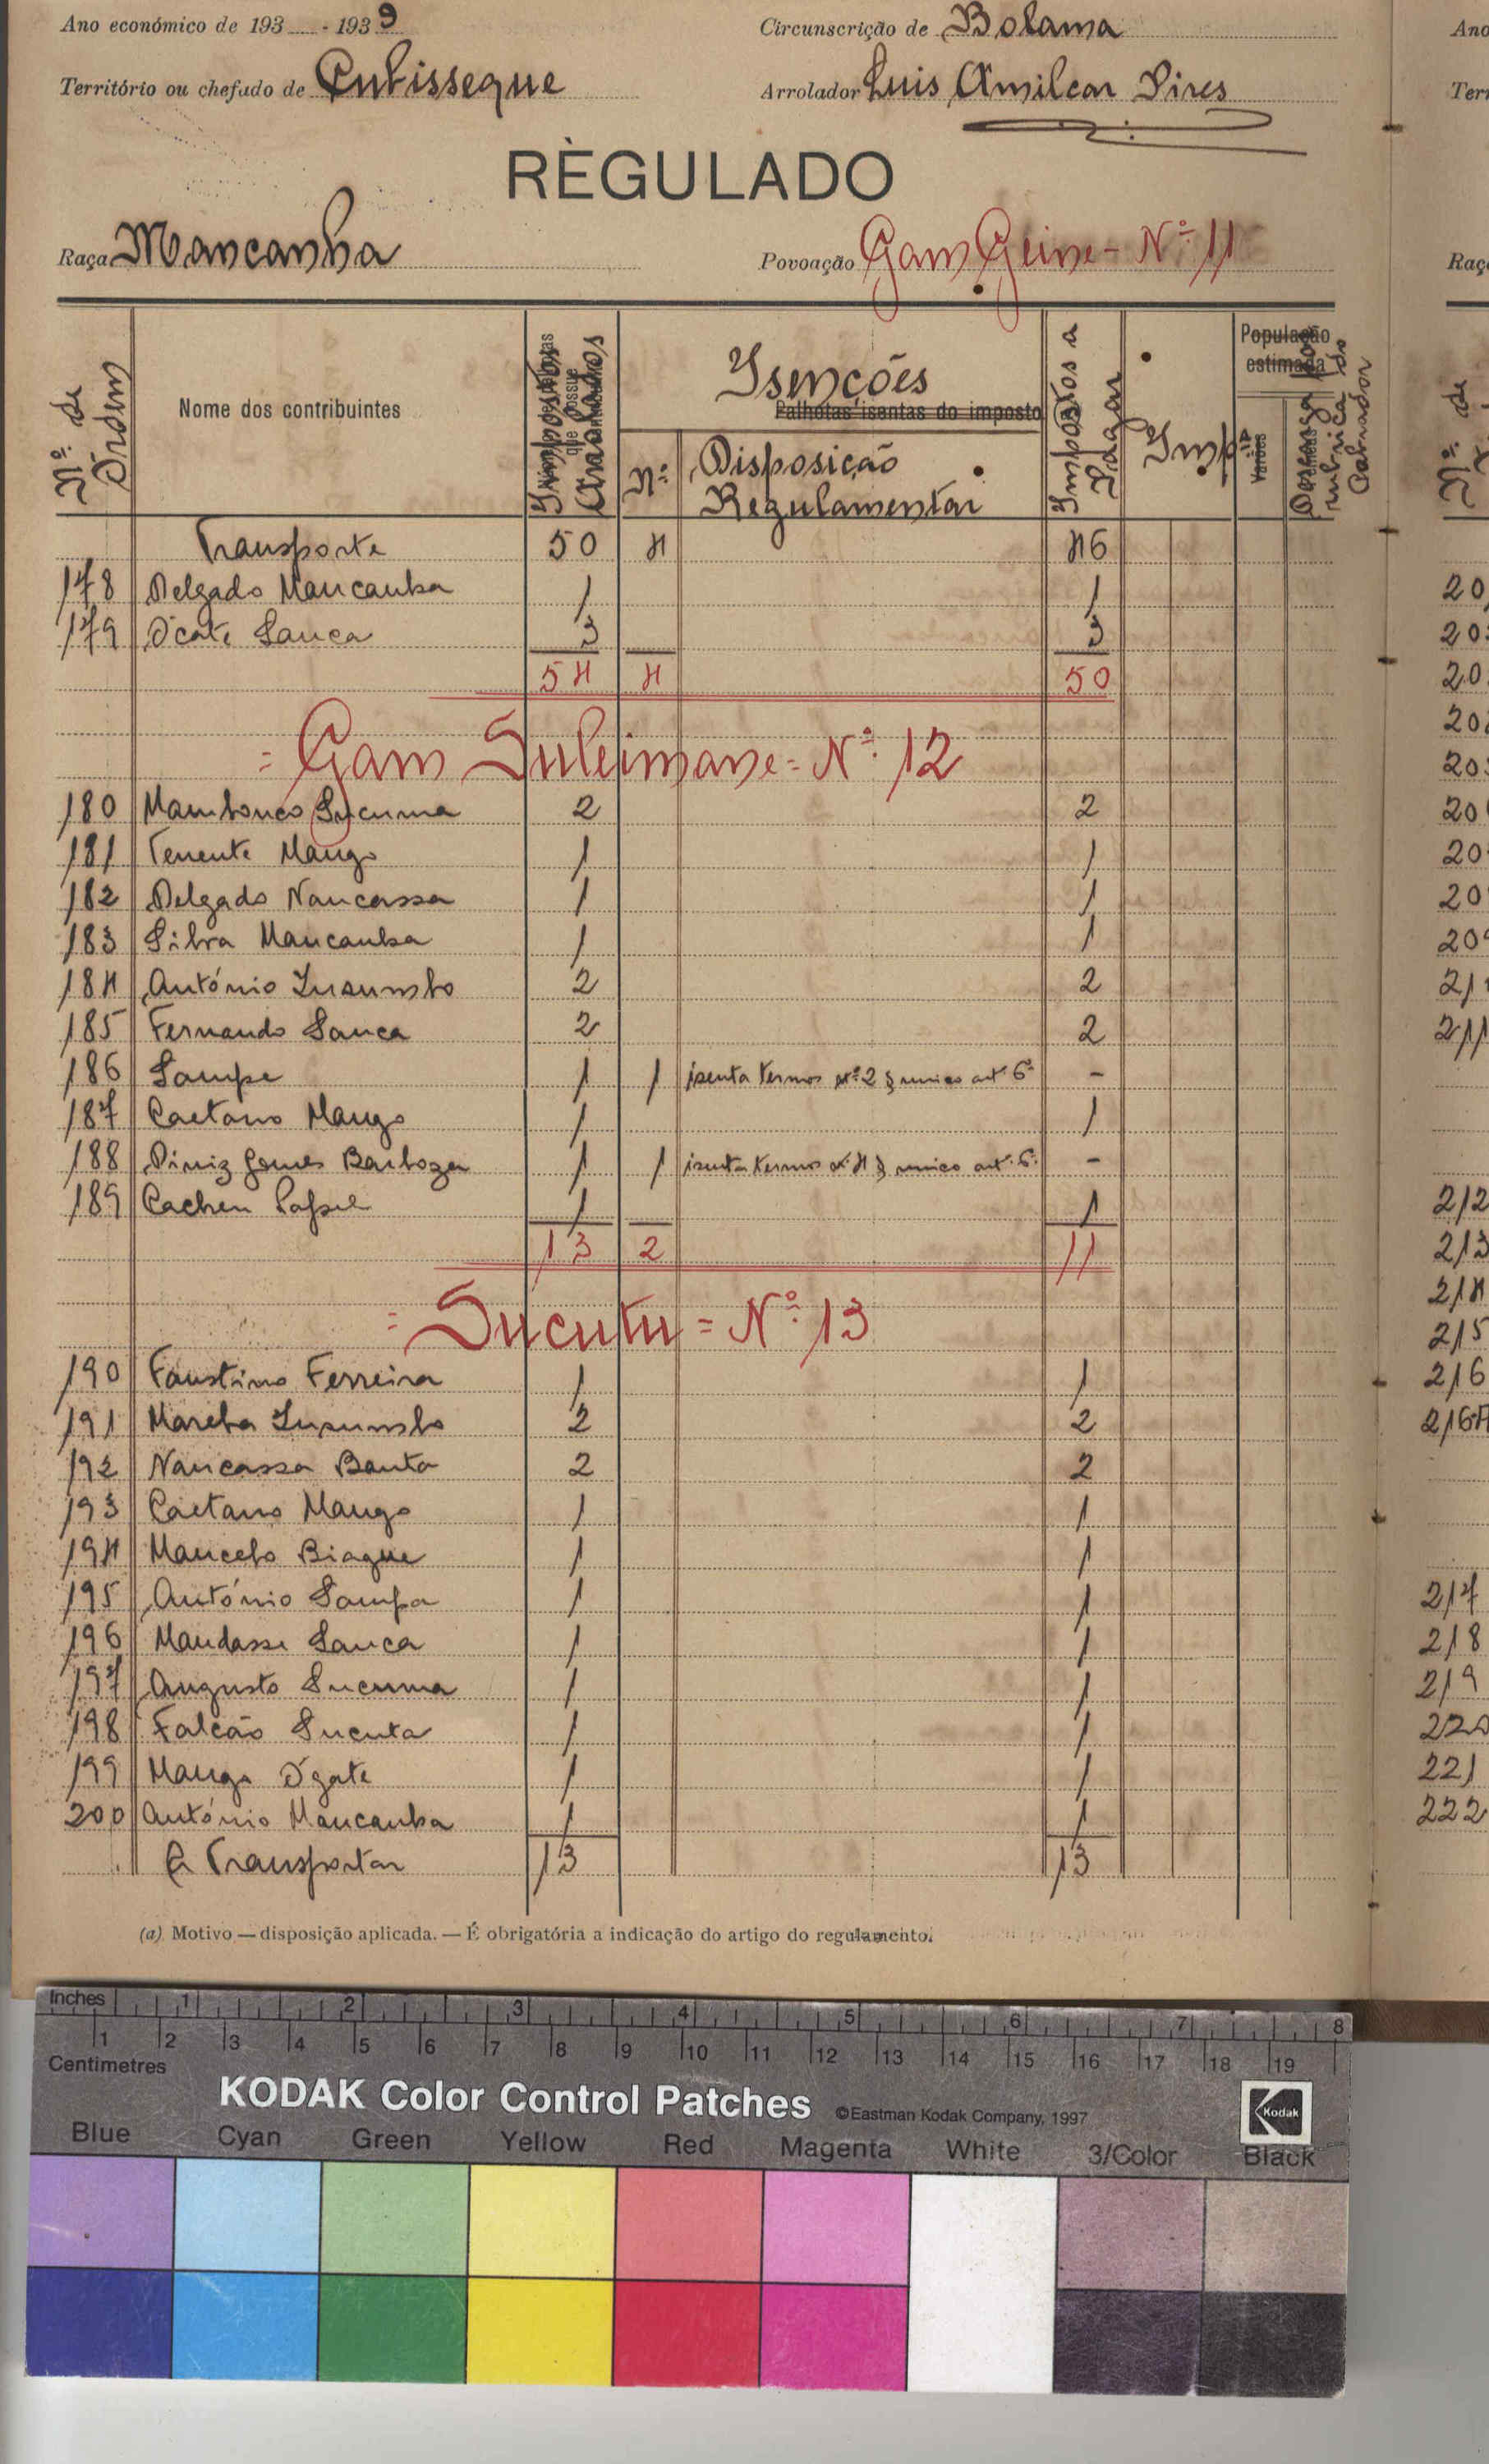 Ano económico de 193 - 1939 Circunscrição de Bolama
Território ou chefado de Antissegue Arrolador Luis Amilcar Pires
RÈGULADO
Raça Mancanha Povoação Gam Geine - Nº 11
Nº de Ordem Nome dos contribuintes Impostos Arrolados Isenções Impostos a Pagar Imp. População estimada
Palhotas isentas do imposto
Nº Disposição Regulamentar Varões
Transporte 50 4 46
178 Delgado Mancanha 1 1
179 D'cate Sanca 3 3
54 4 50
= Gam Suleimane = Nº 12
180 Mambonco Sucuma 2 2
181 Tenente Mango 1 1
182 Delgado Nancassa 1 1
183 Silva Mancanha 1 1
184 António Insumbo 2 2
185 Fernando Sanca 2 2
186 Sampe 1 1 isenta termos nº 2 § unico art 6º -
187 Caetano Mango 1 1
188 Diniz Gomes Barboza 1 1 isenta termos nº 4 § unico art. 6º -
189 Cacheu 1 1
13 2 11
= Sucutu = Nº 13
190 Faustino Ferreira 1 1
191 Insumbo 2 2
192 Nancassa Banta 2 2
193 Caetano Mango 1 1
194 Mancebo Biague 1 1
195 António Sampa 1 1
196 Mandassi Sanca 1 1
197 Augusto Sucuma 1 1
198 Falcão Sucuta 1 1
199 Mango D'gate 1 1
200 António Mancanha 1 1
A Transportar 13 13
(a) Motivo — disposição aplicada. — É obrigatória a indicação do artigo do regulamento.
Ano
Terr
Raç
Nº de
212
213
214
215
216
216A
217
218
219
220
221
222
Inches 1 2 3 4 5 6 7 8
Centimetres 1 2 3 4 5 6 7 8 9 10 11 12 13 14 15 16 17 18 19
KODAK Color Control Patches ©Eastman Kodak Company, 1997 Kodak
Blue Cyan Green Yellow Red Magenta White 3/Color Black